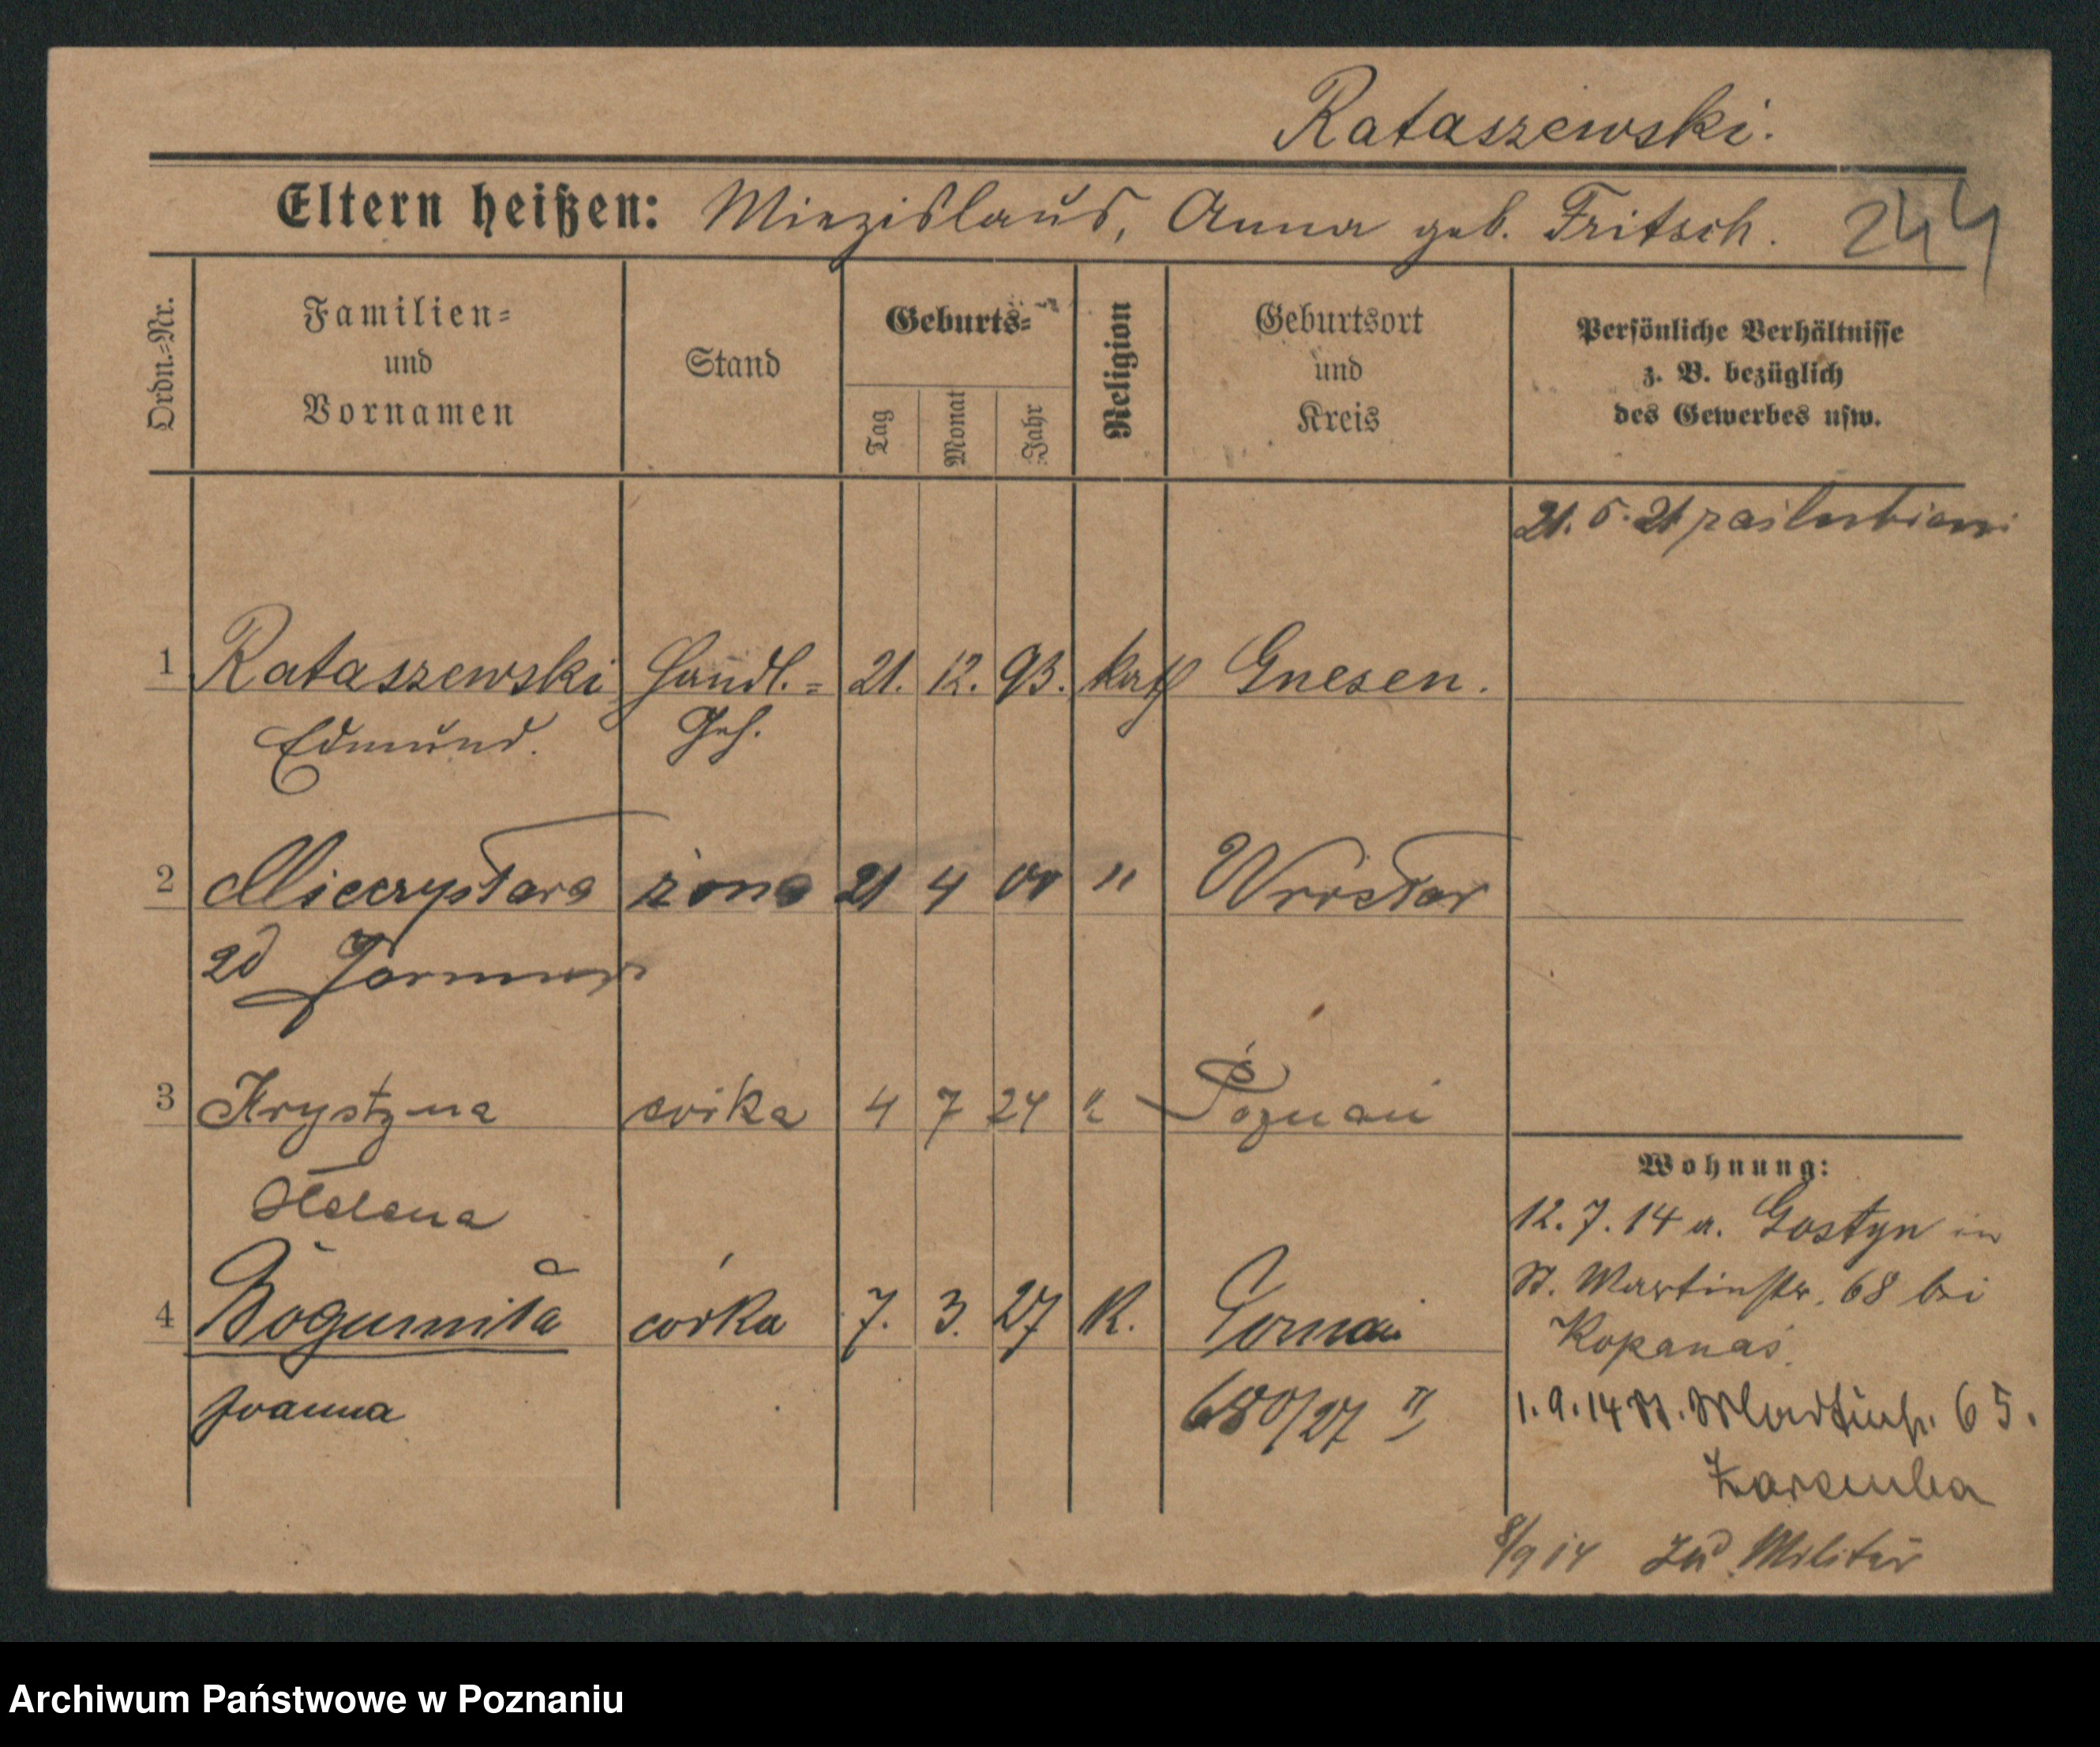 Rataszewski.
Eltern heißen: Miezislaus, Anna geb. Fritsch. 244
Ordn.=Nr.
Familien=
und
Vornamen
Stand
Geburts=
Tag
Monat
Jahr
Religion
Geburtsort
und
Kreis
Persönliche Verhältnisse
z. B. bezüglich
des Gewerbes usw.
21. 5. 21 zaślubieni
1 Rataszewski Handl.= 21. 12. 93. kath Gnesen.
Edmund. Geh.
2 Mieczysława żona 21 4 00 "
zd
3 Krystyna córka 4 7 24 " Poznań
Helena
4 Bogumiła córka 7. 3. 27 K.
Joanna
680/27 II
Wohnung:
12. 7. 14 a. Gostyn in
St. Martinstr. 68 bei
Kopanas.
1. 9. 14 St. Martinstr. 65.
Zaremba
8/9 14 zum Militär
Archiwum Państwowe w Poznaniu